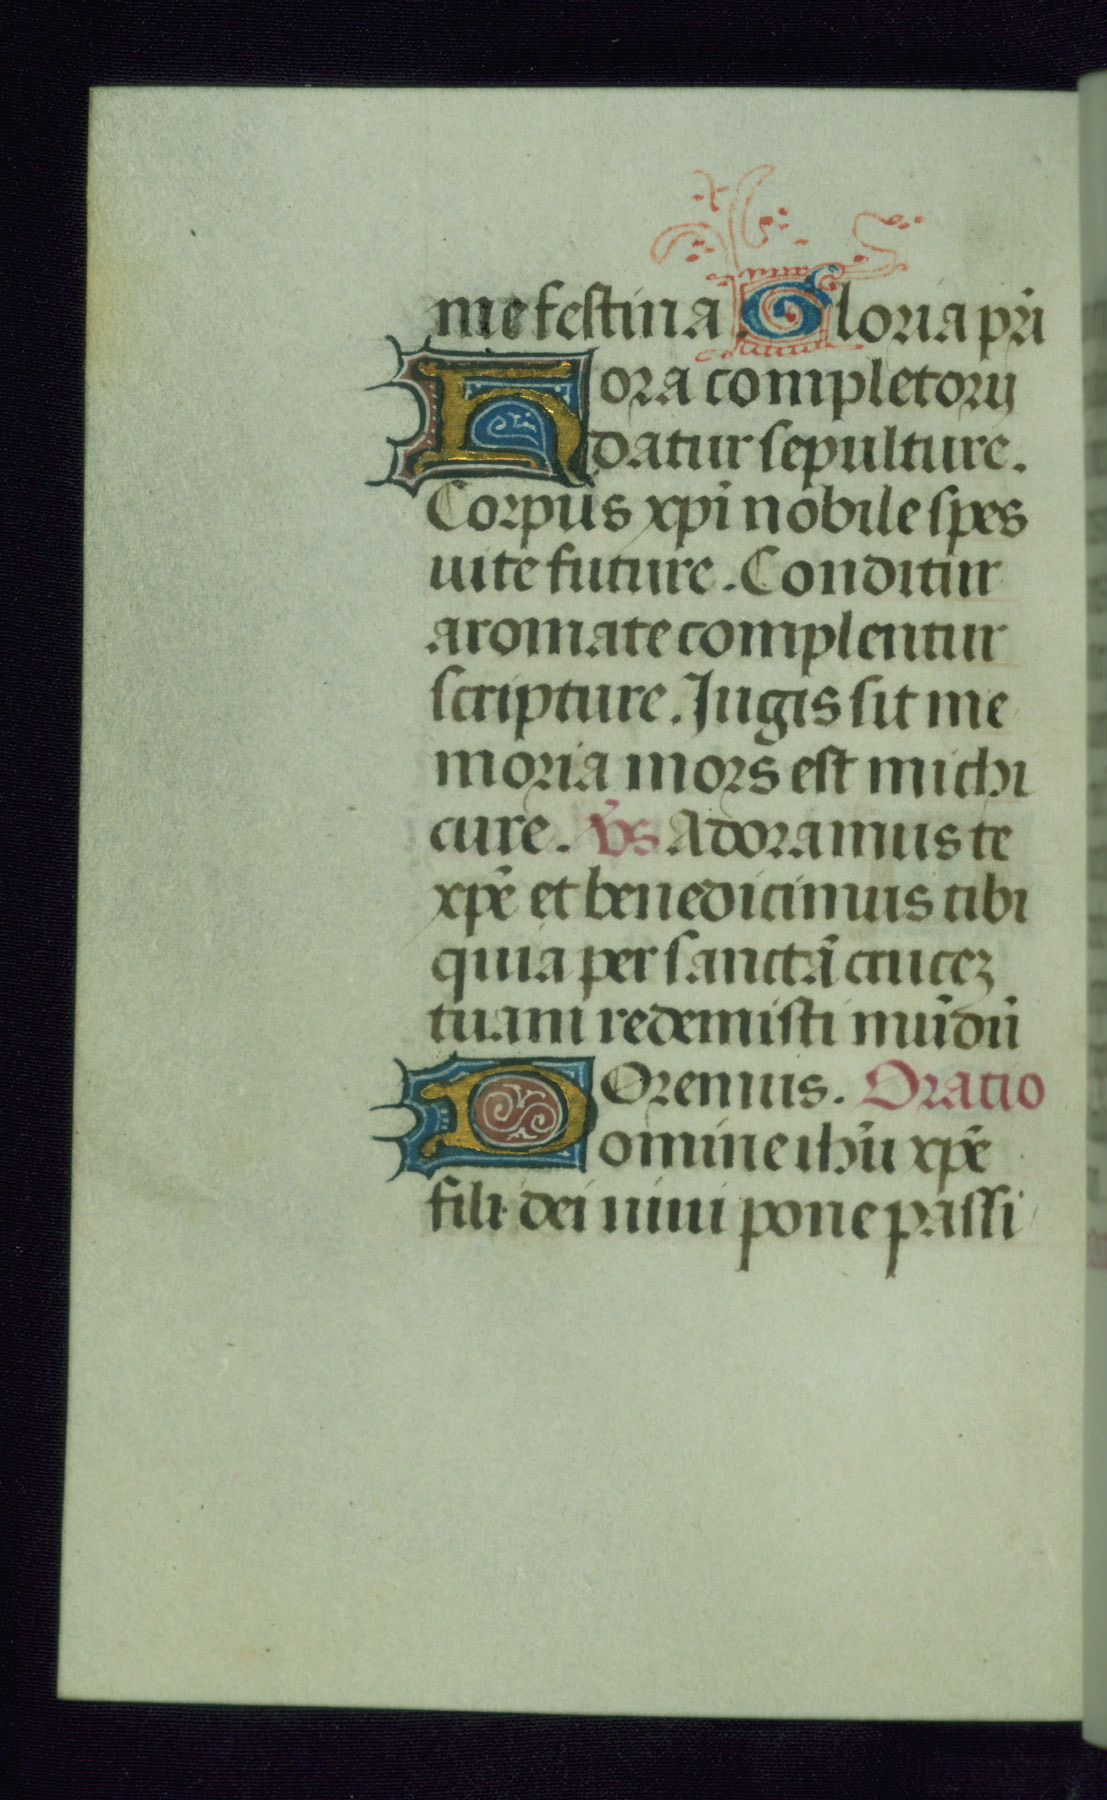 me festina. Gloria pr̄i
Hora completorij
datur sepulture.
Corpus xp̄i nobile spes
uite future. Conditur
aromate complentur
scripture. Jugis sit me
moria mors est michi
cure. v̄s Adoramus te
xp̄e et benedicimus tibi
quia per sanctā crucez
tuam redemisti mūdū
Oremus. Oratio
Domine ihū xp̄e
fili dei uiui pone passi